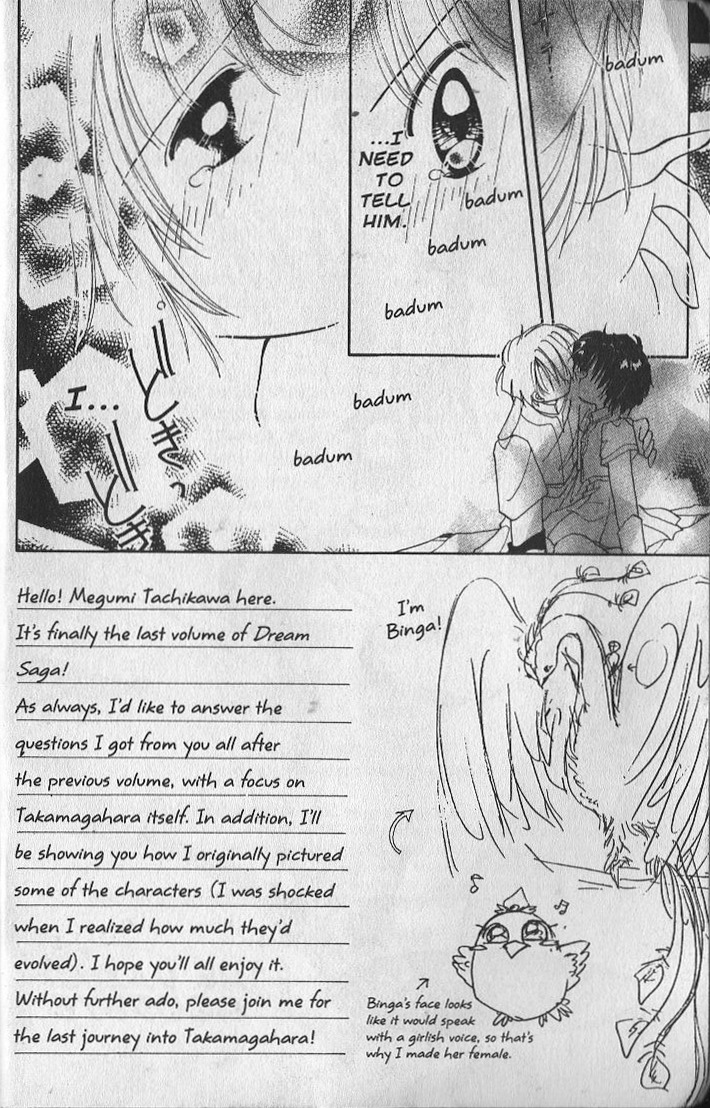 badum
...I
NEED
TO
TELL
HIM.
badum
badum
badum
badum
badum
I...
Hello! Megumi Tachikawa here.
It's finally the last volume of Dream
Saga!
As always, I'd like to answer the
questions I got from you all after
the previous volume, with a focus on
Takamagahara itself. In addition, I'll
be showing you how I originally pictured
some of the characters (I was shocked
when I realized how much they'd
evolved). I hope you'll all enjoy it.
Without further ado, please join me for
the last journey into Takamagahara!
I'm
Binga!
Binga's face looks
like it would speak
with a girlish voice, so that's
why I made her female.